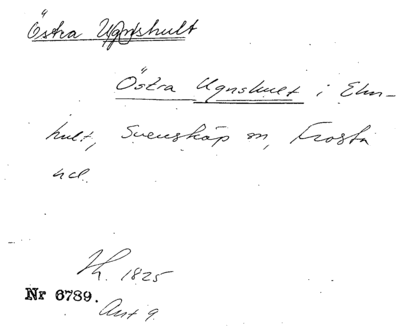 Östra Ugnshult
Östra Ugnshult i Elm-
hult, Svensköp sn, Frosta
hd.
Th. 1825
Nr 6789.
Ant 9.